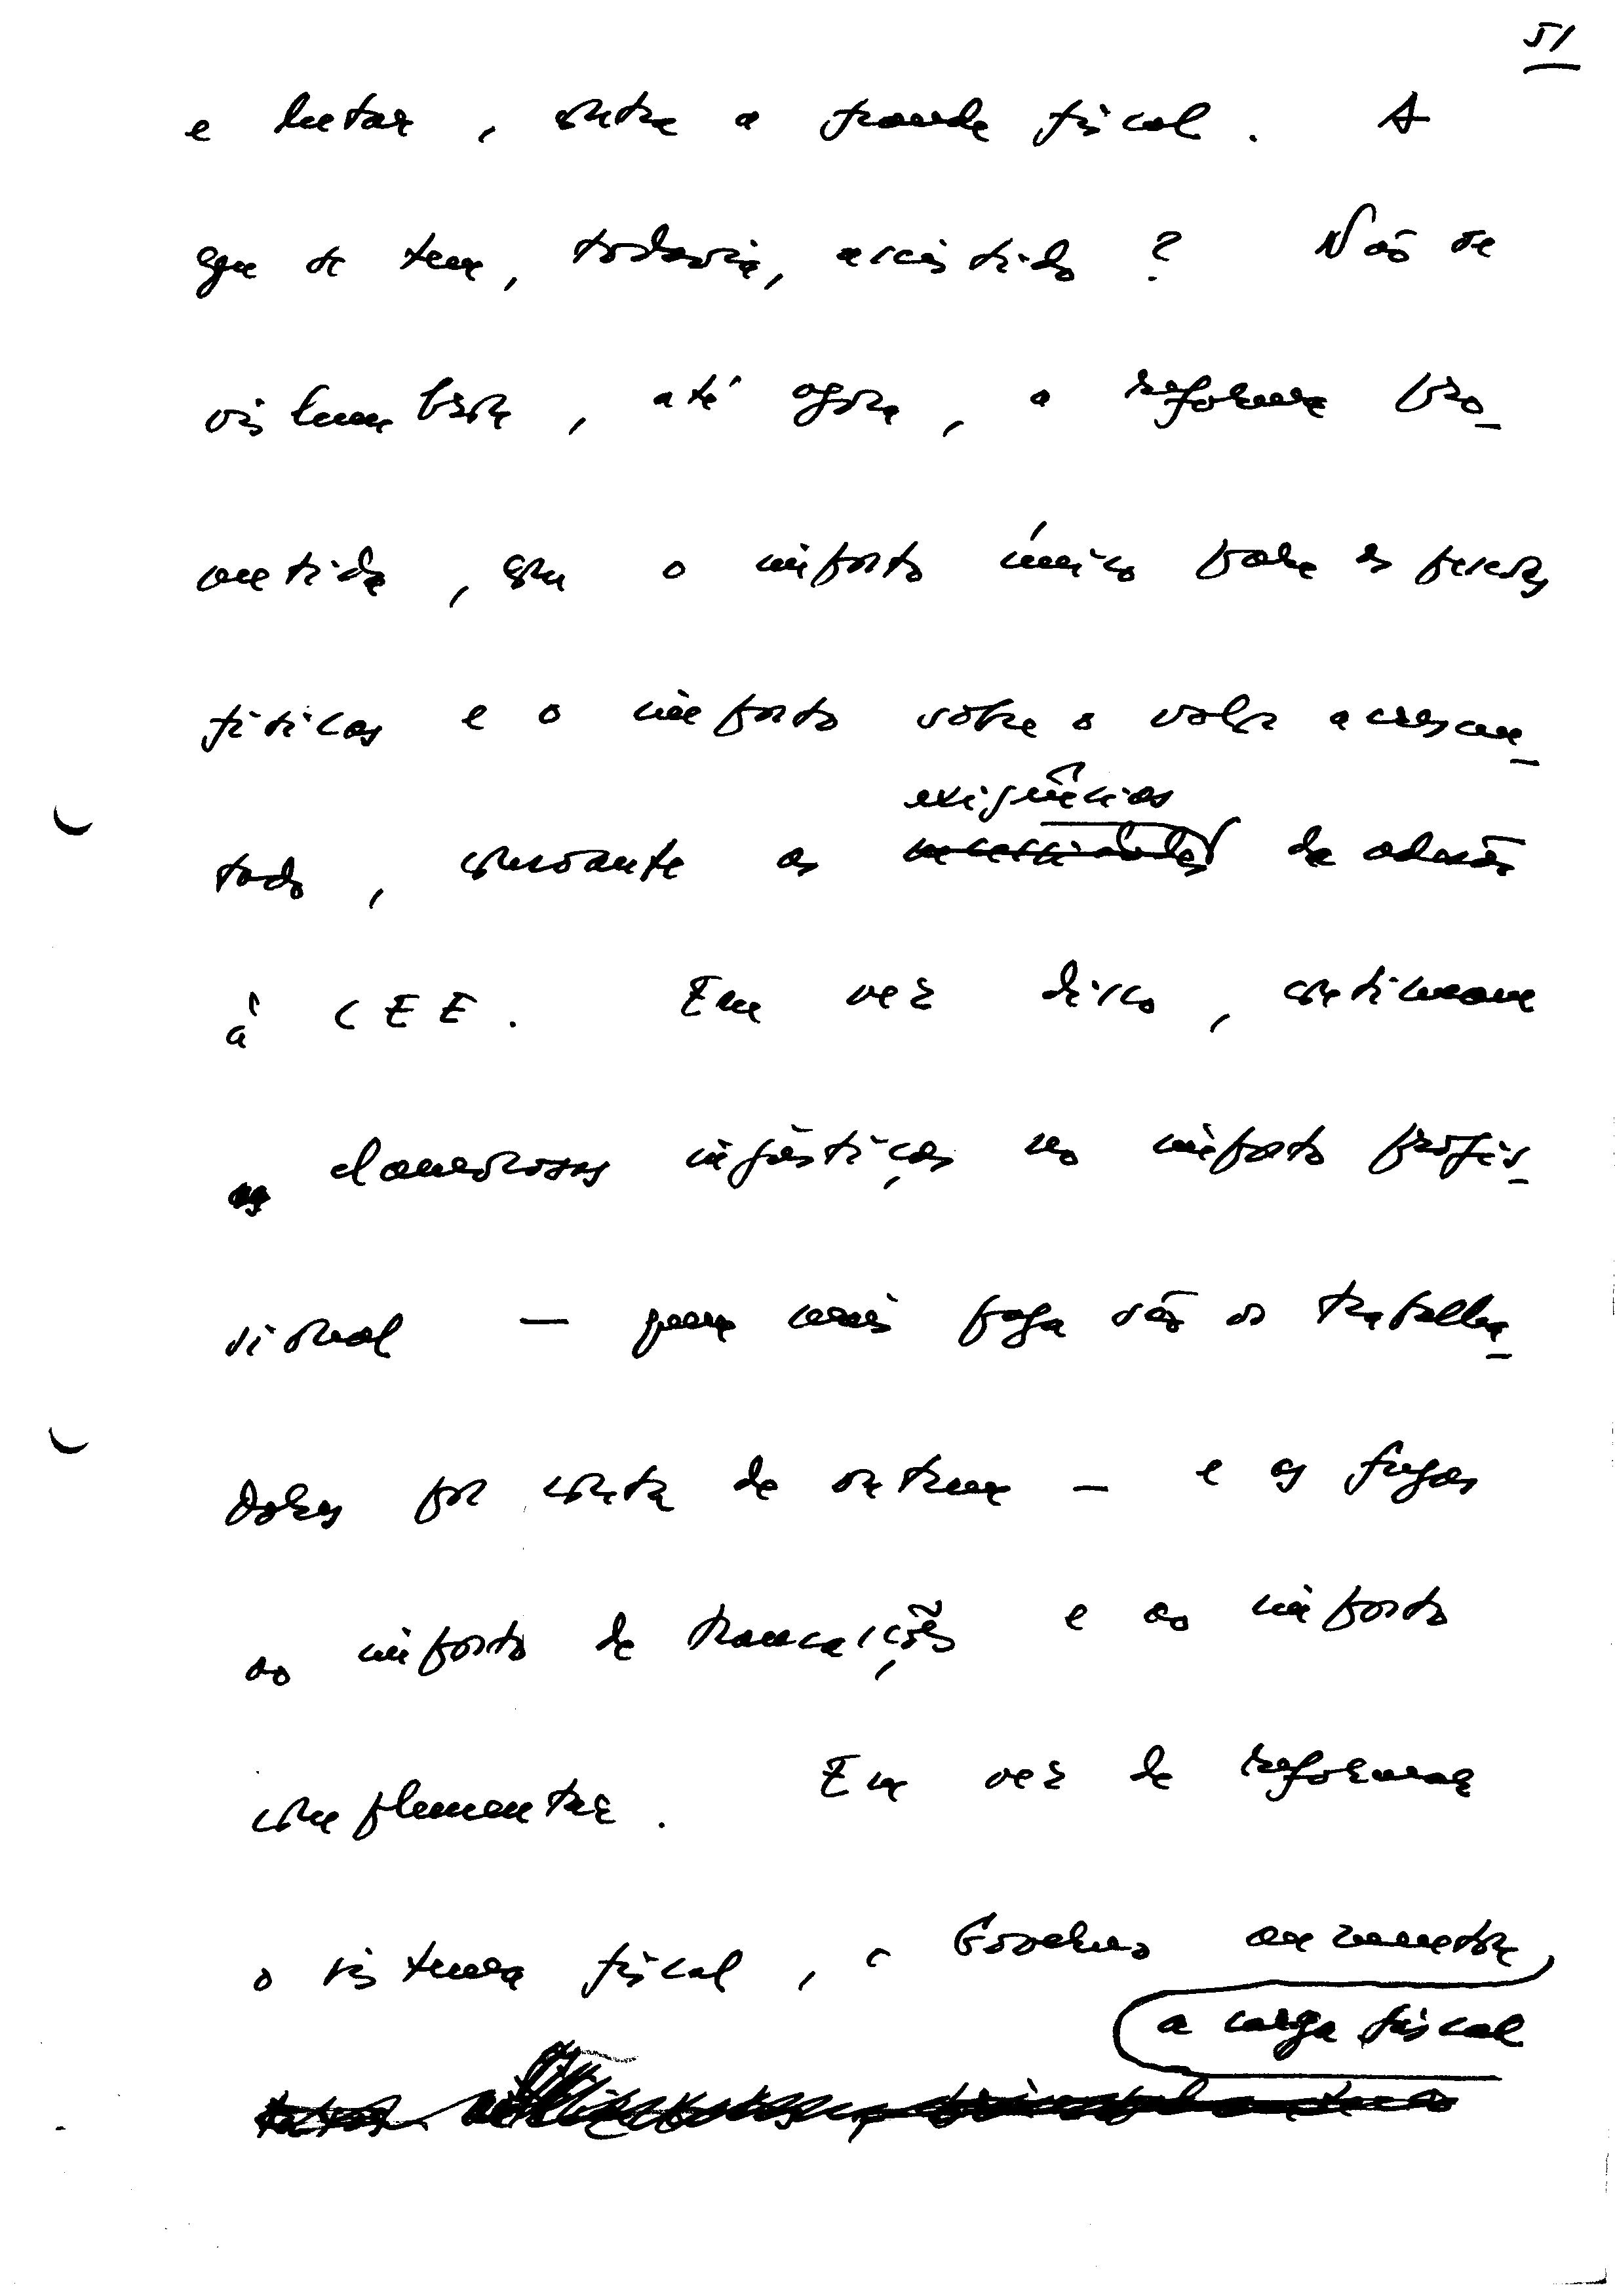 51
e lutar, contra a fraude fiscal. A
que se tem, todavia, assistido? Não se
vislumbra, até agora, a reforma pro_
metida, que o imposto único para as pessoas
físicas e o imposto sobre o valor acrescen_
exigências
tado, consoante as necessidades de adesão
à CEE. Em vez disso, continuam
clamorosas injustiças no imposto profis_
sional — quem mais paga são os trabalha_
dores por conta de outrem — e as fugas
ao imposto de transacções e ao imposto
complementar. Em vez de reformar
o sistema fiscal, o Governo aumenta
a carga fiscal